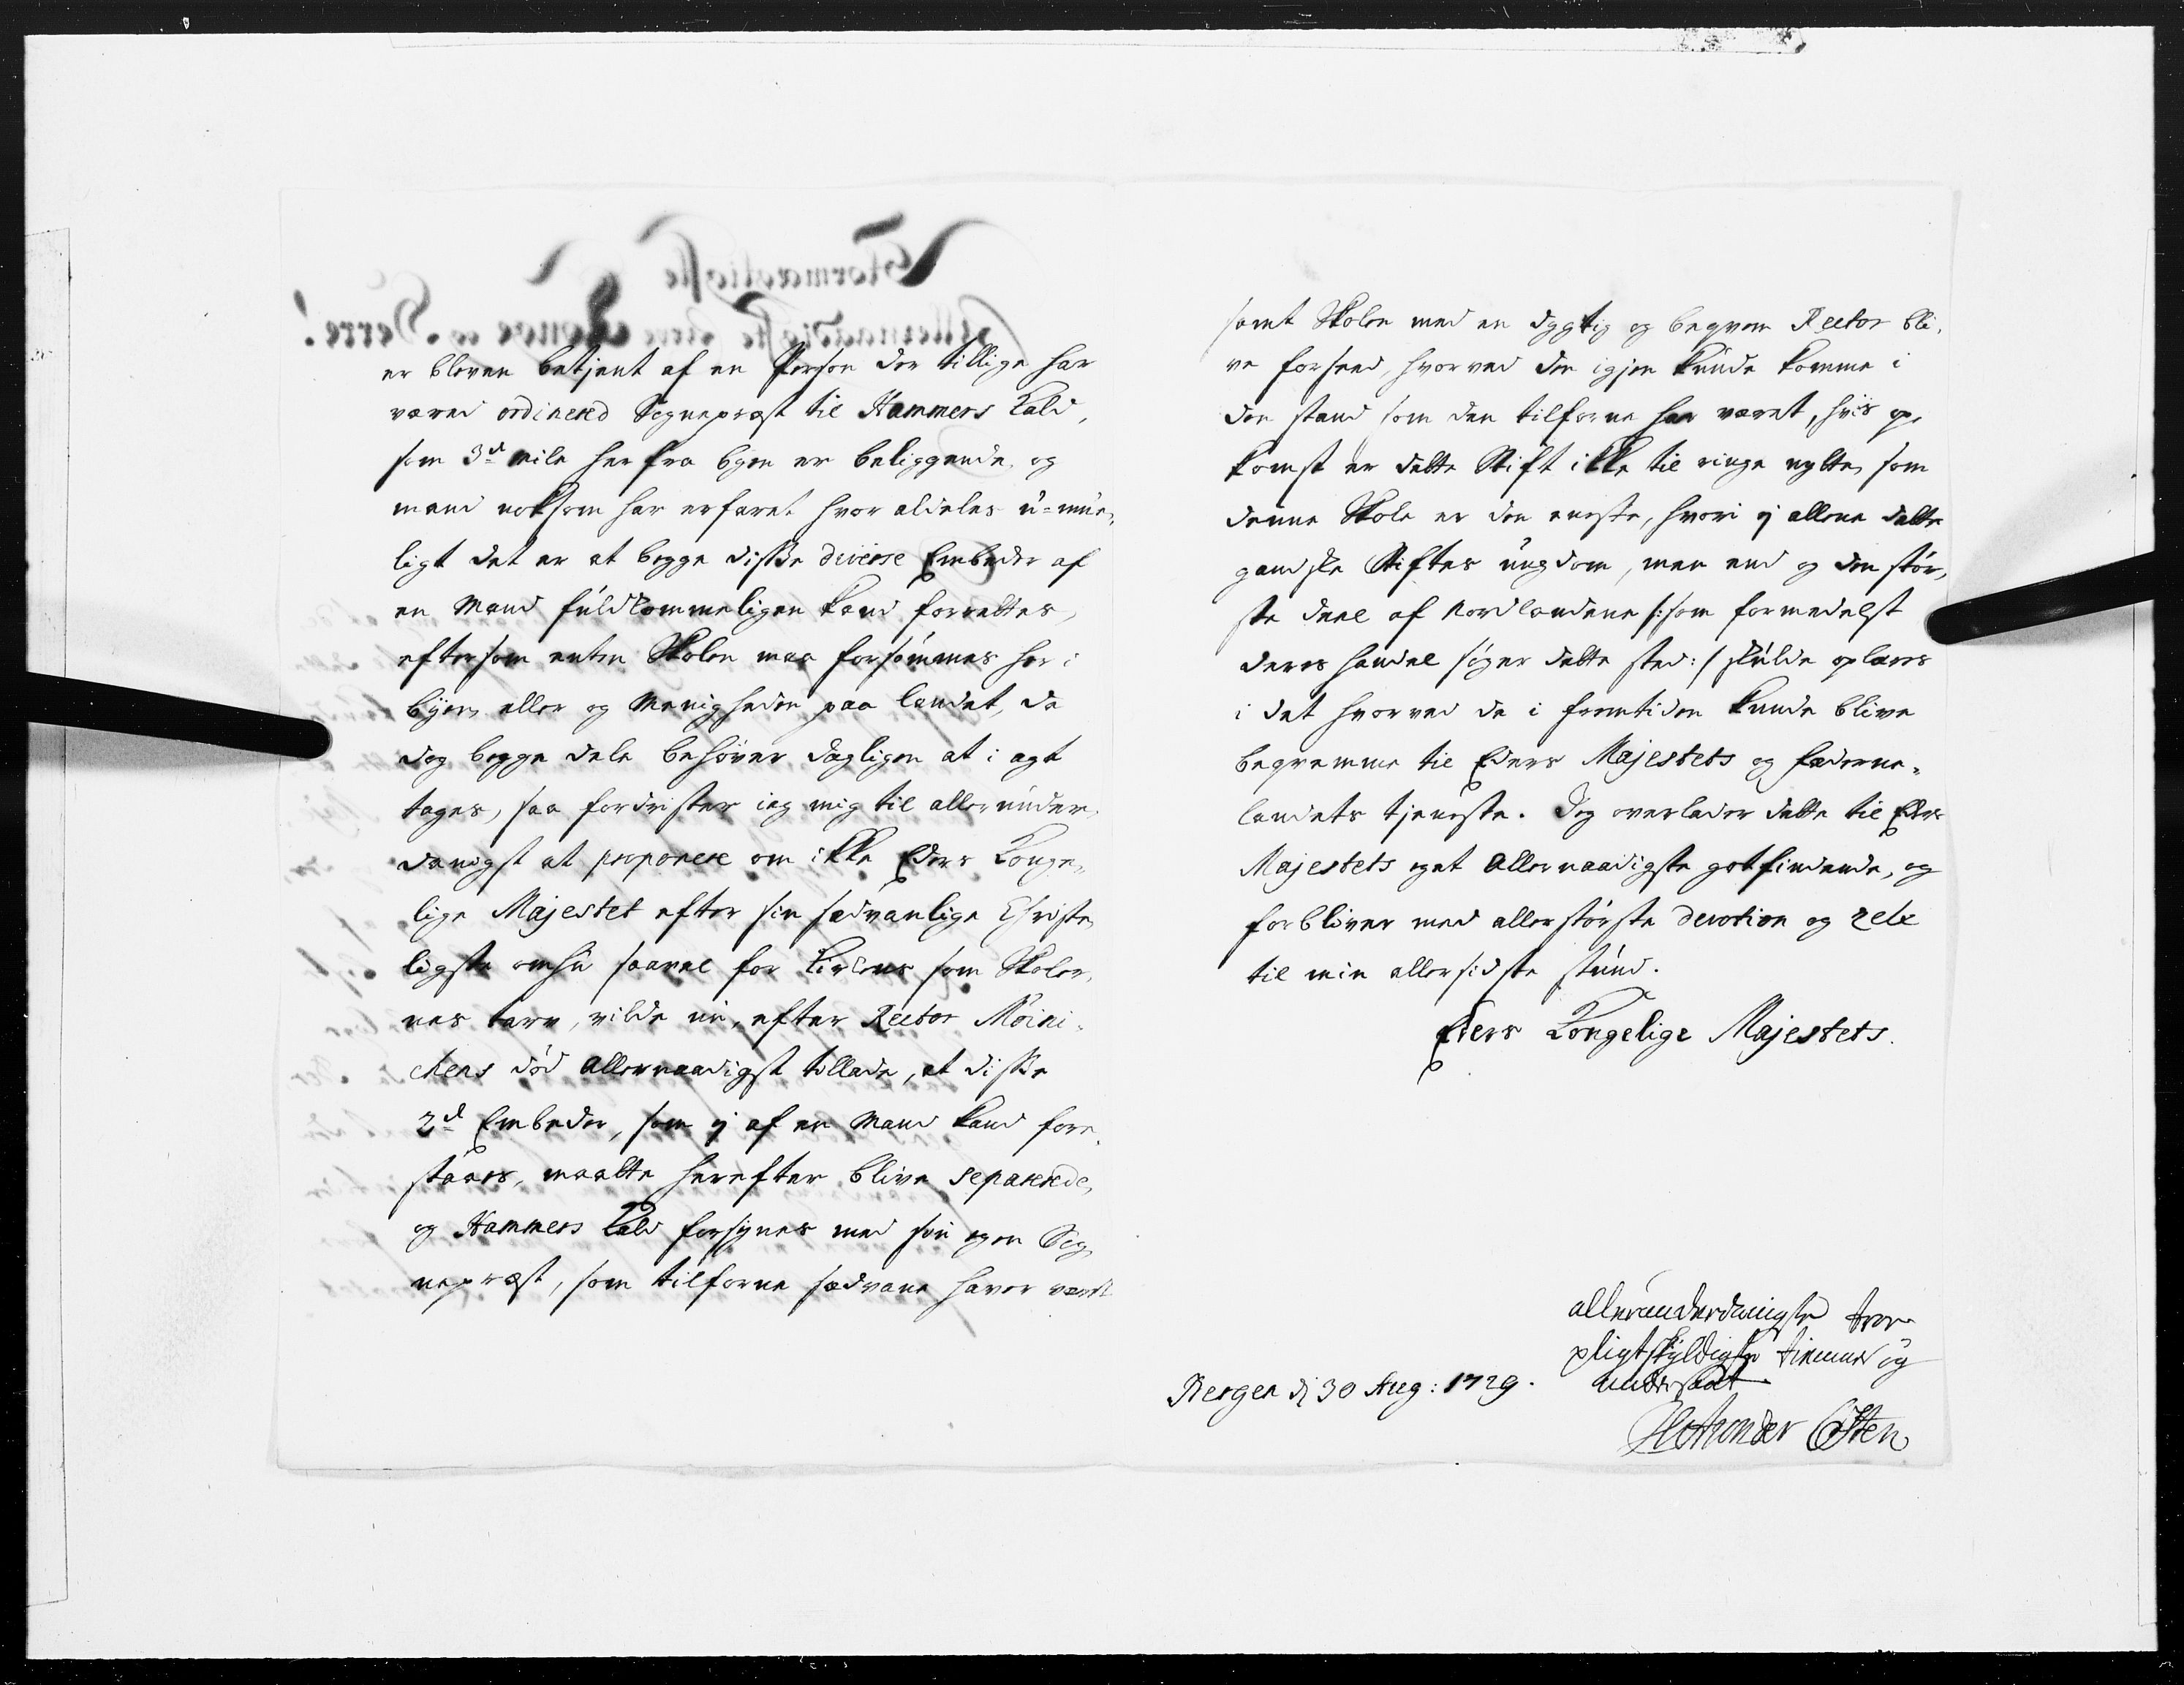 er bleven betjent af en Person der tillige har
været ordinered Sognepræst til Hammers Kald,
som 3d mile her fra byen er beliggende, og
mand noksom har erfaret hvor aldeles u-mue,
ligt det er at begge disse diverse Embeder af
en Mand fuldkommeligen kand forrettes,
eftersom enten Skolen maa forsömmes her i
byen, eller og Menigheden paa landet, da
dog begge dele behöver dagligen at i agt
tages, saa fordrister ieg mig til allerunder,
danigst at proponere om ikke Eders Konge,
lige Majestet efter sin sædvanlige Christe,
ligste omhu saavel for Kirkens som Skoler,
nes tarv, vilde nu, efter Rector Möini,
chens död allernaadigst tillade, at disse
2d Embeder, som ej af en Mand kand fore,
staaes, maatte herefter blive separerede,
og Hammers Kald forsynes med sin egen Sog,
nepræst, som tilforne sædvane haver været
samt Skolen med en dygtig og beqvem Rector bli,
ve forseed, hvorved den igjen kunde komme i
den stand som den tilforne har været, hvis op,
komst er dette Stift ikke til ringe nytte, som
denne Skole er den eneste, hvori ej allene dette
gandske Stiftes ungdom, men end og den stör,
ste deel af Nordlandene /:som formedelst
deres handel söger dette sted:/ skulde oplæres
i det hvorved de i fremtiden kunde blive
beqvemme til Eders Majestets og fæderne,
landets tjeneste. Jeg overlader dette til Eders
Majestets eget allernaadigste gotfindende, og
forbliver med allerstörste devotion og zele
til min allersidste stund.
Eders Kongelige Majestets.
allerunderdanigste troe
pligtskyldigste tienner og
undersaat
Bergen dj 30 Aug: 1729.